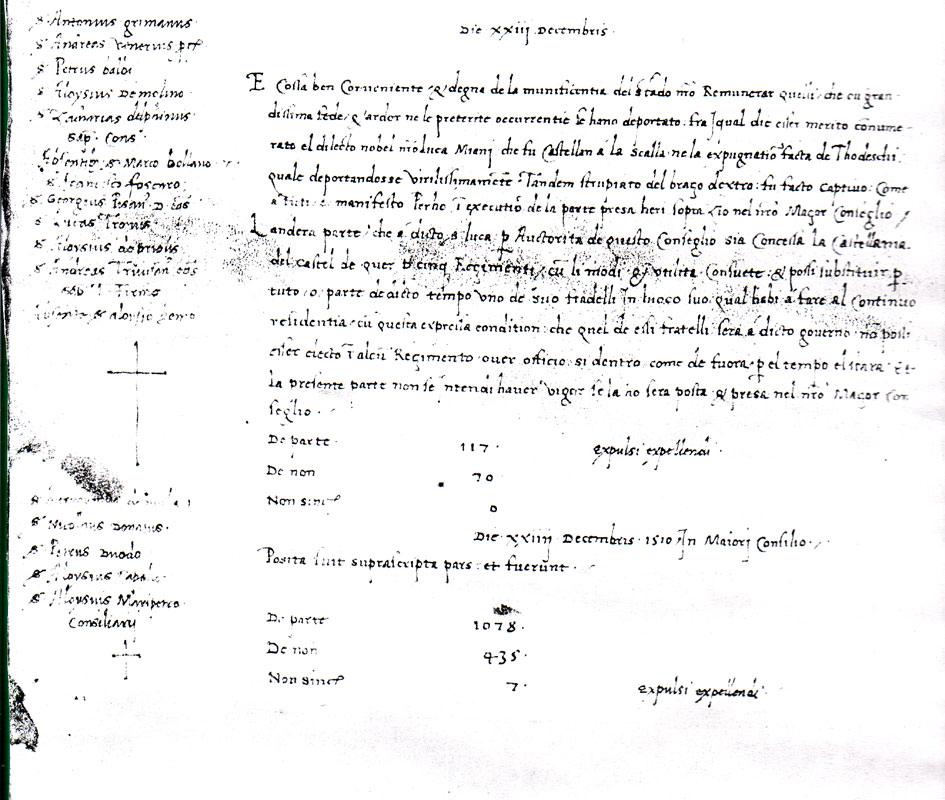 Die xxiij Decembris
s. Antonius grimanus
s. Andreas Venerius
s. Petrus balbi
s. Aloysius Demolino
s. Zacharias delphinus
sap. Cons.
s. Marco bollano
s. Francisco foscaro
s. Georgius Pisan. D. eqs
s. Lucas Tronus
s. Aloysius de priolis
s. Andreas Trivisan eqs
sap. T. Firme
s. aloysio
E Cossa ben Conveniente & degna de la munificentia del stado nr̄o Remunerar quelli che cū gran
dissima fede & ardor ne le preterite occurrentie se hano deportato: fra i qual die esser merito conume-
rato el dilecto nobel nr̄o luca Miani che fu Castellan a la Scalla ne la expugnatiō facta de Thodeschi
quale deportandosse virilissimamente Tandem strupiato del brazo dextro: fu facto captivo: Come
a tuti e manifesto Perho ī executiō de la parte presa heri sopra zio nel nr̄o Mazor Conseglio
Landera parte che a dicto s. luca p Auctorita de questo Conseglio sia Concessa la Castellania
del castel de quer p cinq Regimenti cū li modi & utilita Consuete & possi substituir p
tuto o parte de dicto tempo uno de suo fradelli In luogo suo qual habi a fare al continuo
residentia cū questa expressa condition: che quel de essi fratelli sera a dicto governo nō possi
esser electo ī alcū Regimento over officio si dentro come de fuora p el tempo el stara Et
la presente parte non se intendi haver vigor se la nō sera posta & presa nel nr̄o Mazor Con
seglio
De parte 117 expulsi expellendi
De non 70
Non sincere 0
s. Nicolaus Donatus
s. Petrus Duodo
s. Aloysius
s. Aloysius Maripetro
Consiliarij
Die xxiiij Decembris 1510 In Maiorj Consilio
Posita fuit suprascripta pars: et fuerunt
De parte 1078
De non 435
Non sincere 7 expulsi expellendi